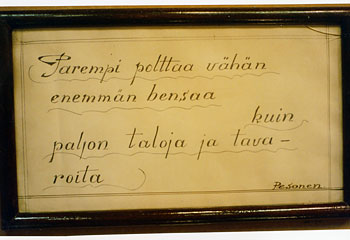 Parempi polttaa vähän
enemmän bensaa
kuin
paljon taloja ja tava-
roita
Pesonen